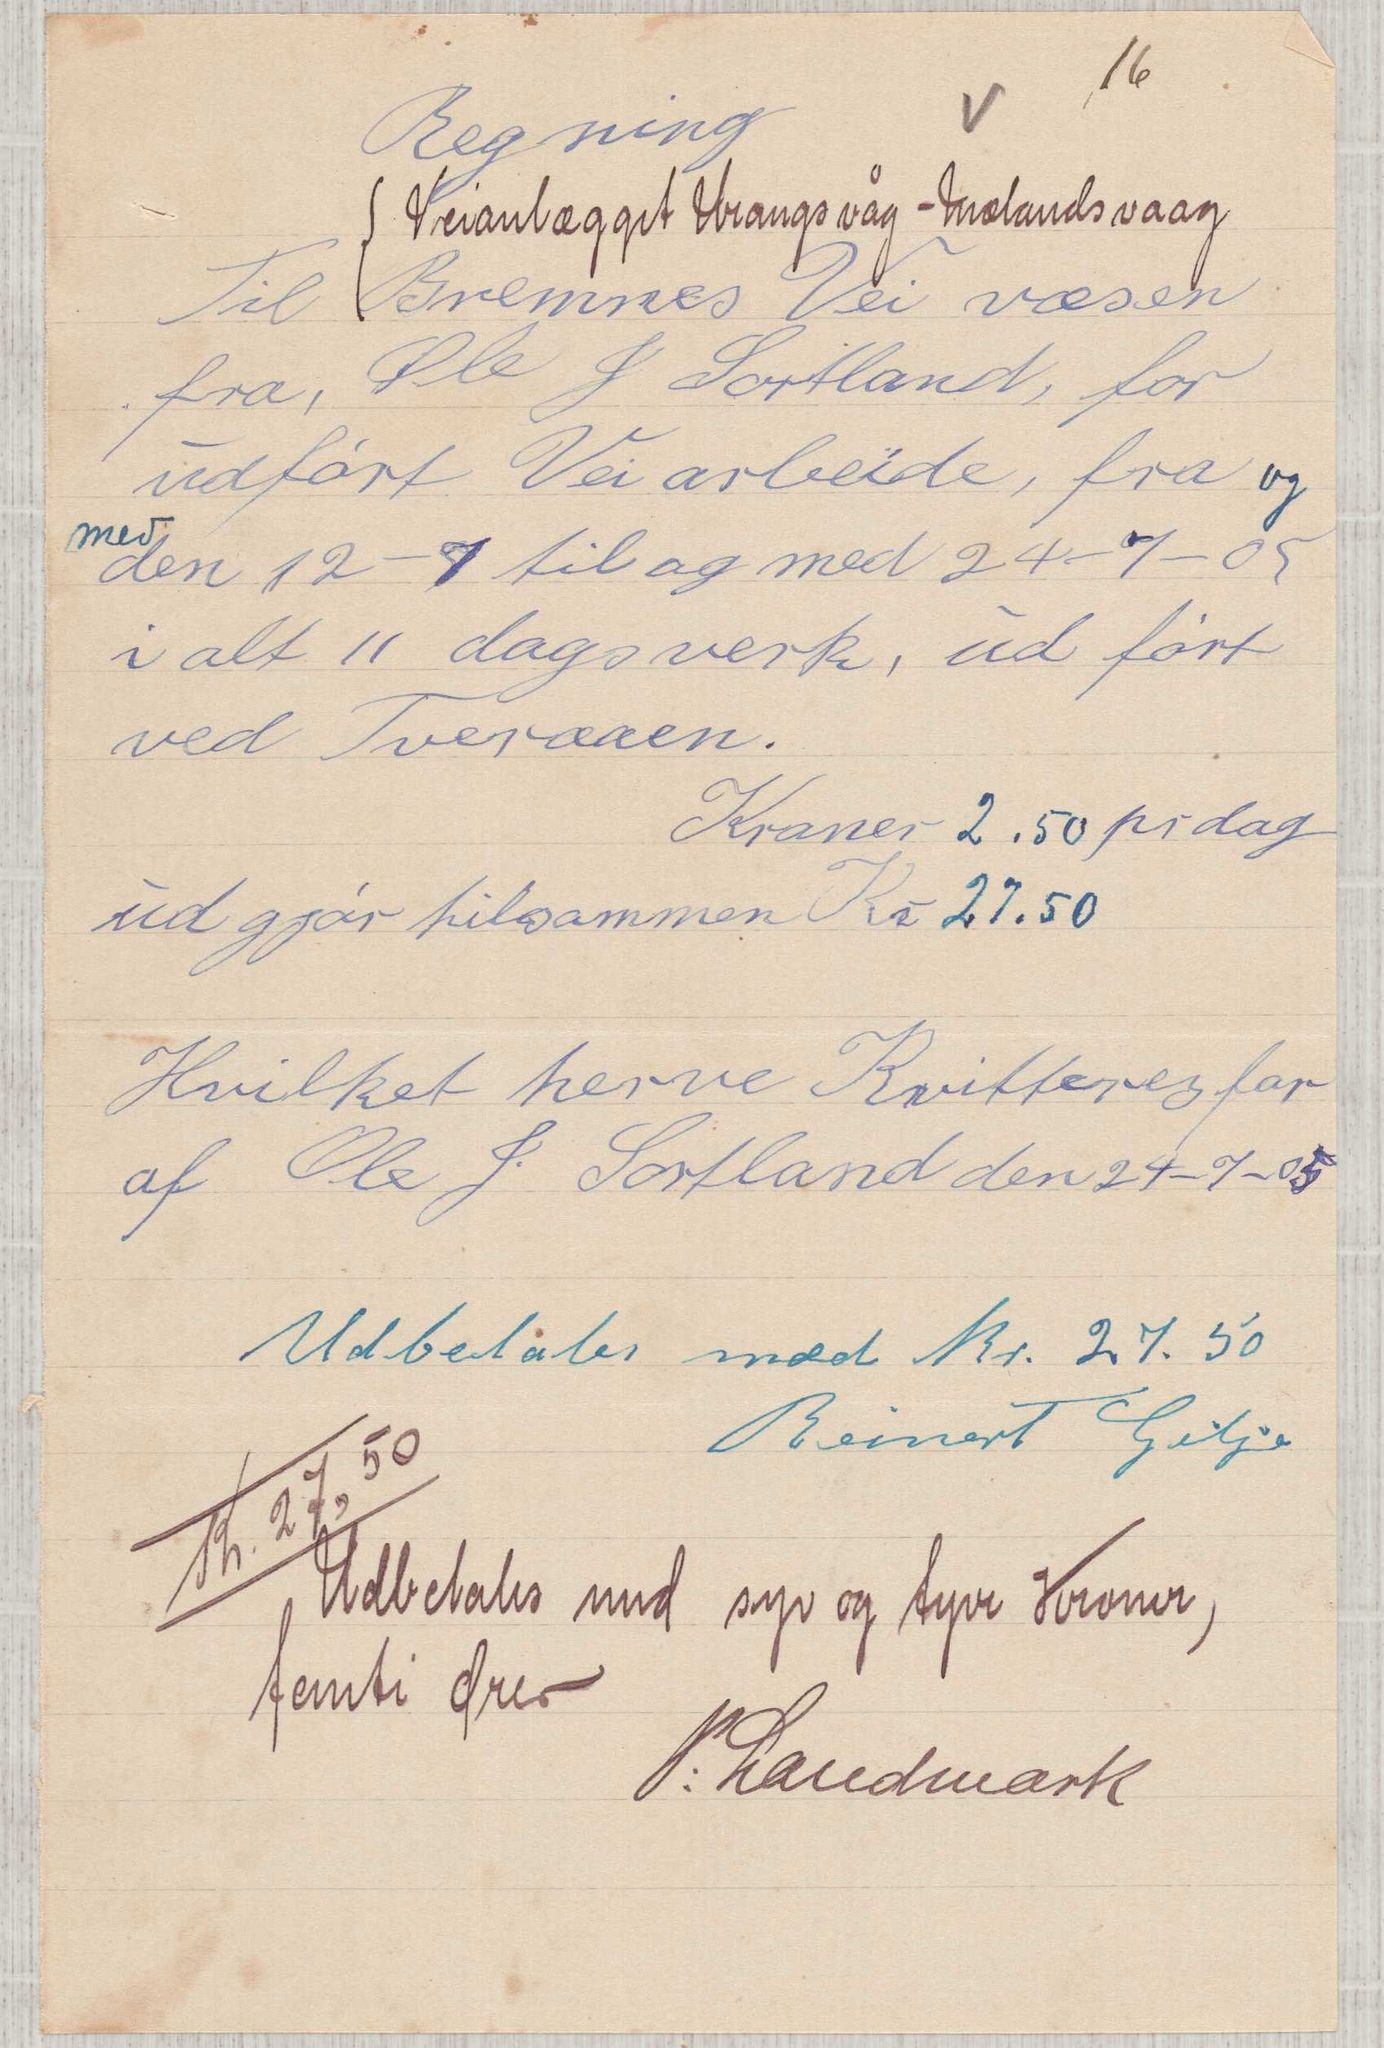 16
V
Regning
{ Veianlægget Urangsvåg - Mælandsvaag
Til Bremnes Vei væsen
fra, Ole J Sortland, for
udført Vei arbeide, fra og
med
den 12-7 til og med 24-7-05
i alt 11 dagsverk, ud ført
ved Tveraaen.
Kroner 2.50 pr dag
ud gjør tilsammen Kr 27.50
Hvilket herve Kvitteres for
af Ole J. Sortland den 24-7-05
Udbetales med Kr. 27.50
Reinert Gilje
Kr. 27,50
Udbetales med syv og tyve Kroner,
femti Ører
P. Landmark